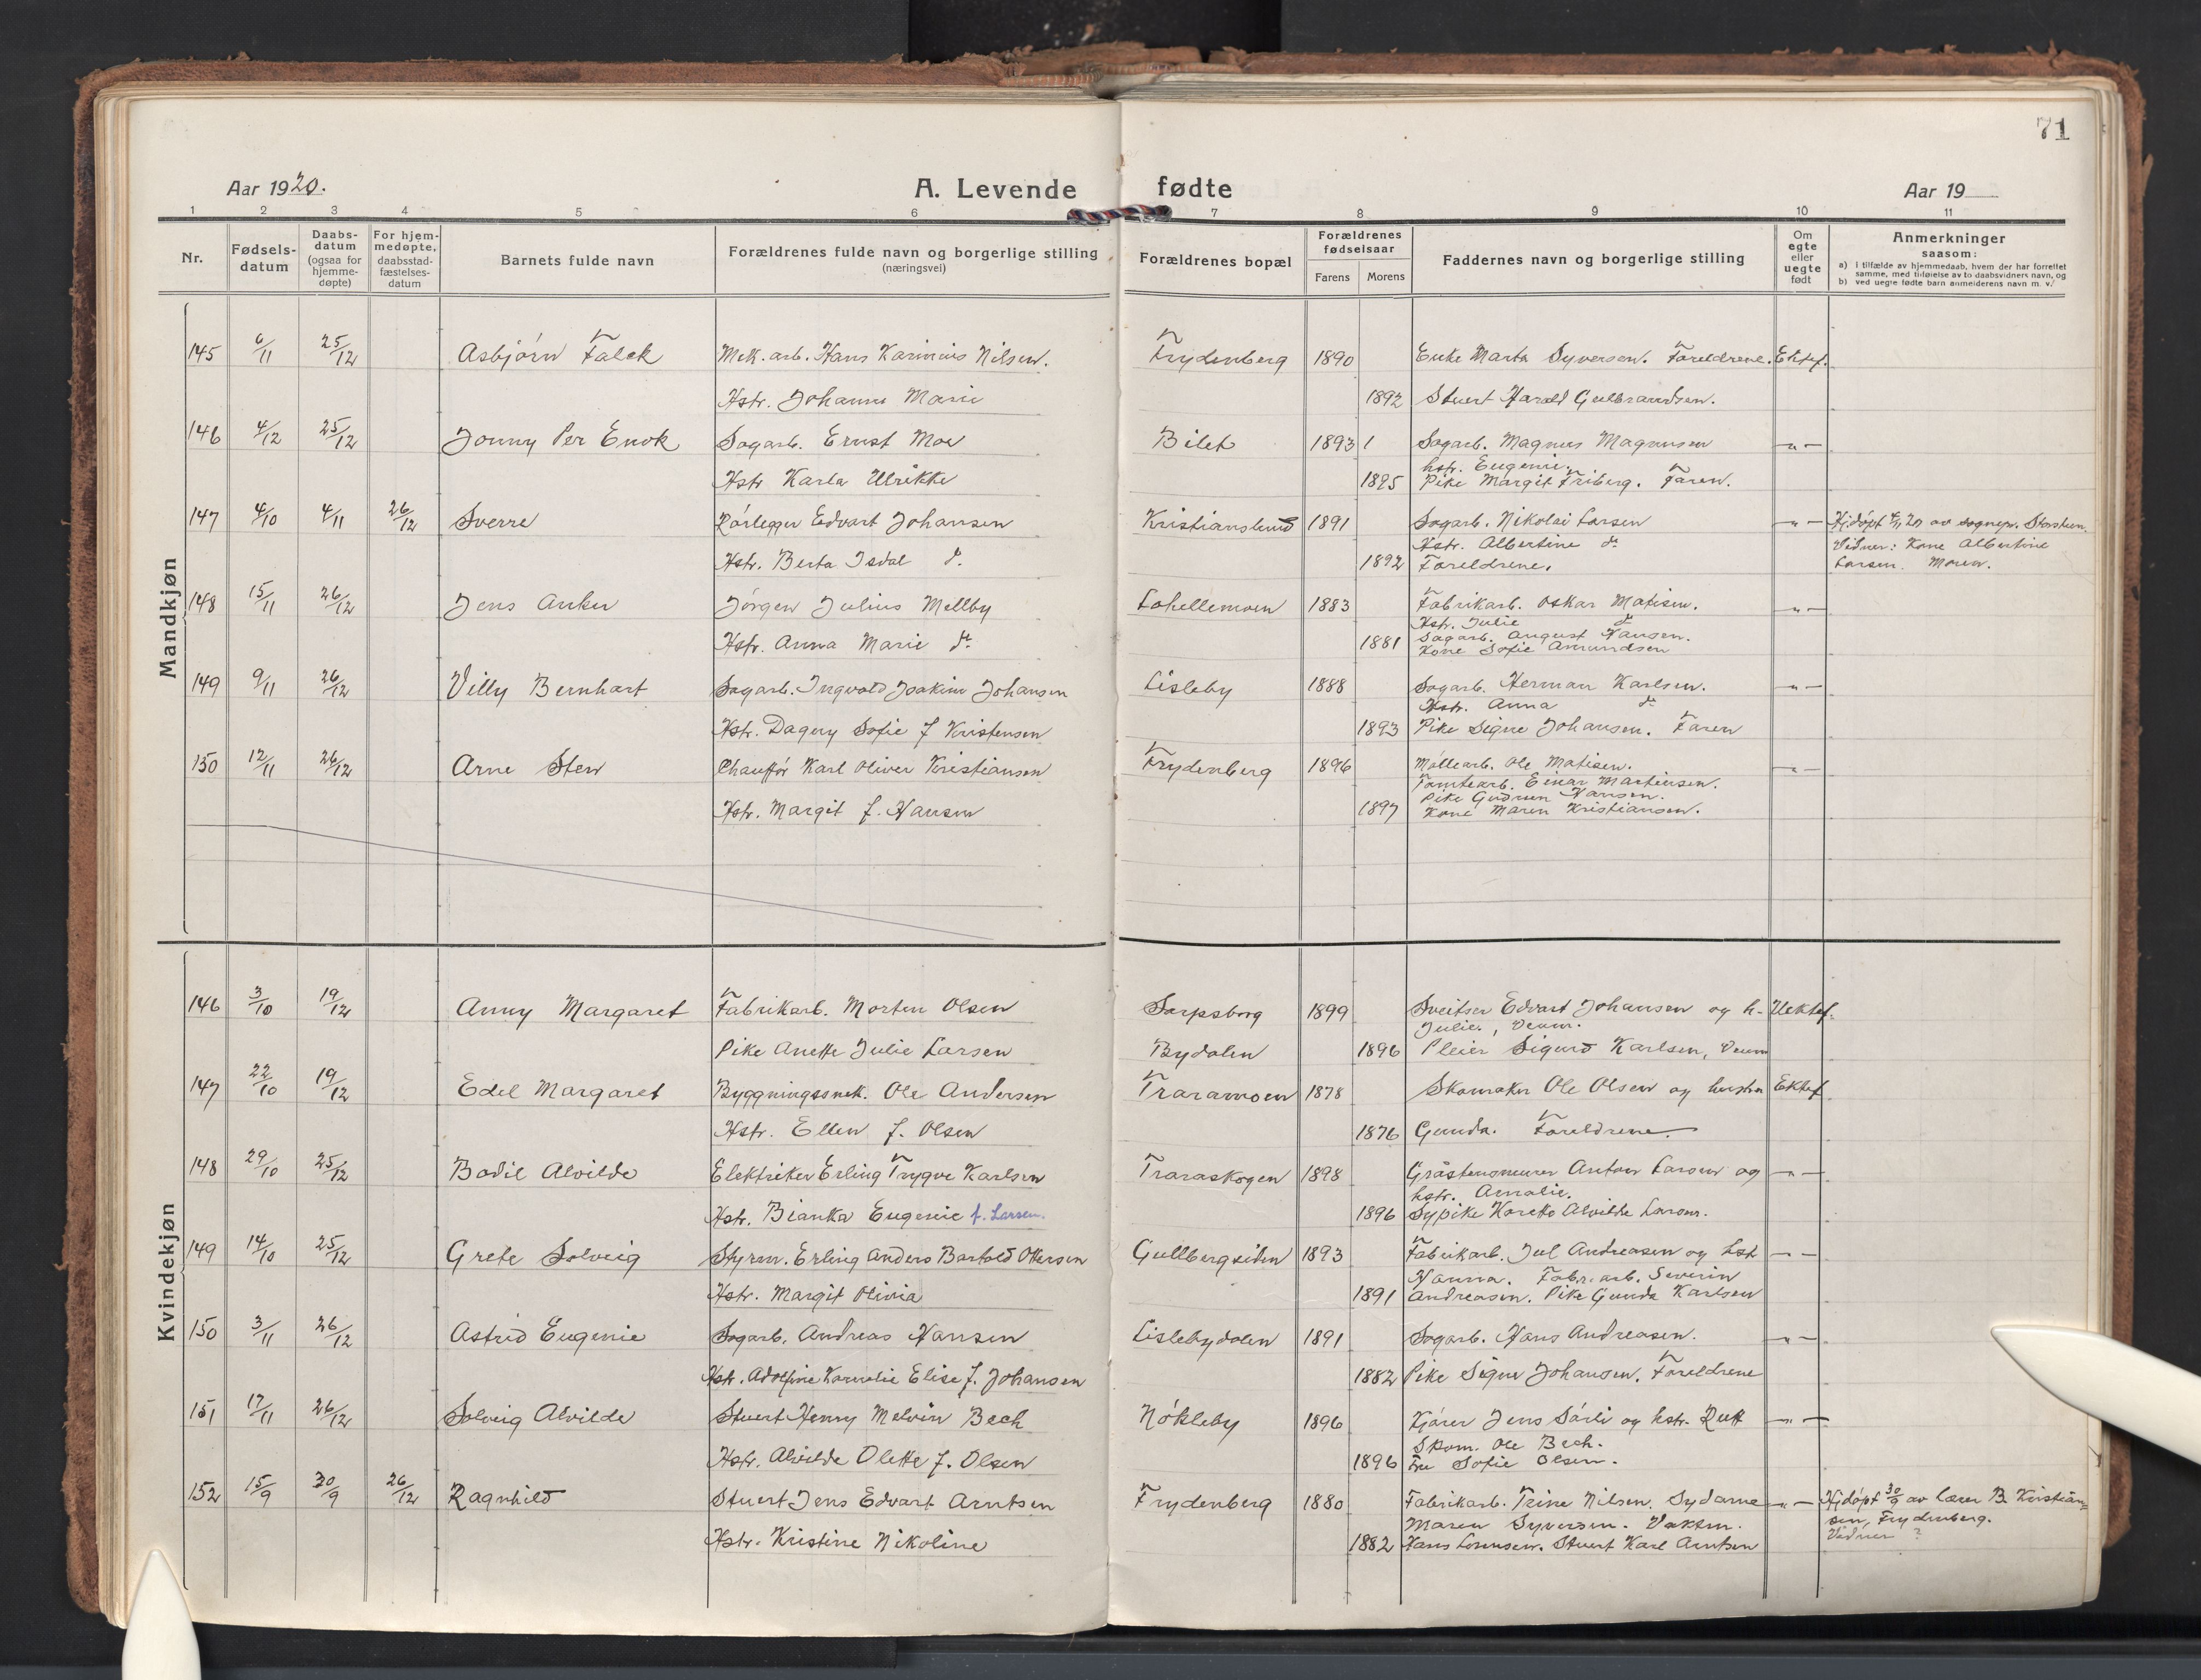 71
Aar 1920.
A. Levende fødte
Aar 19
1 2 3 4 5 6 7 8 9 10 11
Nr.
Fødsels-
datum
Daabs-
datum
(ogsaa for
hjemme-
døpte)
For hjem-
medøpte,
daabsstad-
fæstelses-
datum
Barnets fulde navn
Forældrenes fulde navn og borgerlige stilling
(næringsvei)
Forældrenes bopæl
Forældrenes
fødselsaar
Farens Morens
Faddernes navn og borgerlige stilling
Om
egte
eller
uegte
født
Anmerkninger
saasom:
a) i tilfælde av hjemmedaab, hvem der har forrettet
samme, med tilføielse av to daabsvidners navn, og
b) ved uegte fødte barn anmelderens navn m. v.
Mandkjøn
145 6/11 25/12 Asbjørn Falck Mek. arb. Hans Karinius Nilsen. Frydenberg 1890 Enke Marta Syversen. Foreldrene. Ektef.
Hstr. Johanne Marie 1892 Stuert Harald Gulbrandsen.
146 4/12 25/12 Jonny Per Enok Sagarb. Ernst Moe Bilet 1893 1 Sagarb. Magnus Magnusen -„-
hstr. Eugenie.
Hstr Karla Ulrikke 1895 Pike Margit Friberg. Faren.
147 4/10 4/11 26/12 Sverre Rørlegger Edvart Johansen Kristianslund 1891 Sagarb. Nikolai Larsen -„- Hjdøpt 4/11 20 av sognepr. Storsteen.
Hstr. Albertine do. Vidner: Kone Albertine
Hstr. Berta Isdal d. 1892 Foreldrene. Larsen. Moren.
148 15/11 26/12 Jens Anker Jørgen Julius Mellby Lokellemoen 1883 Fabrikarb. Oskar Matisen. -„-
Hstr. Julie do
Hstr. Anna Marie do. 1881 Sagarb. August Hansen.
Kone Sofie Amundsen
149 9/11 26/12 Villy Bernhart Sagarb. Ingvald Joakim Johansen Lisleby 1888 Sagarb. Herman Karlsen. -„-
Hstr. Anna do
Hstr. Dagny Sofie f Kristensen 1893 Pike Signe Johansen. Faren
150 12/11 26/12 Arne Sten Chauffør Karl Oliver Kristiansen Frydenberg 1896 Møllearb. Ole Matisen. -„-
Tomtearb. Einar Martinsen.
Pike Gudrun Hansen.
Hstr. Margit f. Hansen 1897 Kone Maren Kristiansen.
Kvindekjøn
146 3/10 19/12 Anny Margaret Fabrikarb. Morten Olsen Sarpsborg 1899 Sveitser Edvart Johansen og h- Uektef.
Julie, Veum.
Pike Anette Julie Larsen Bydalen 1896 Pleier Sigurd Karlsen, Veum
147 22/10 19/12 Edel Margaret Byggningssnek. Ole Andersen Traramoen 1878 Skomaker Ole Olsen og hustru Ektef
Hstr. Ellen f. Olsen 1876 Gunda. Foreldrene.
148 29/10 25/12 Bodil Alvilde Elektriker Erling Trygve Karlsen Traraskogen 1898 Gråstensmurer Anton Larsen og -„-
hstr. Amalie.
Hstr. Bianka Eugenie f. Larsen. 1896 Sypike Alvilde Larsen.
149 14/10 25/12 Grete Solveig Styrm. Erling Anders Bartold Ottersen Gullbergsiden 1893 Fabrikarb. Jul Andreasen og hst -„-
Hanna. Fabr. arb. Severin
Hstr. Margit Olivia 1891 Andreasen. Pike Gunda Karlsen
150 3/11 26/12 Astrid Eugenie Sagarb. Andreas Hansen Lislebydalen 1891 Sagarb. Hans Andreasen. -„-
Hstr. Adolfine Kornelie Elise f. Johansen 1882 Pike Signe Johansen. Foreldrene
151 17/11 26/12 Solveig Alvilde Stuert Henry Melvin Bech Nøkleby 1896 Kjører Jens Sørli og hstr. Rutt -„-
Skom. Ole Bech.
Hstr. Alvilde Olette f. Olsen 1896 Fru Sofie Olsen.
152 15/9 30/9 26/12 Ragnhild Stuert Jens Edvart Arntsen Frydenberg 1880 Fabrikarb. Trine Nilsen. Sydame -„- Hjdøpt 30/9 av lærer B. Kristian-
Maren Syversen. Vaktm. sen, Frydenberg.
Hstr. Kristine Nikoline 1882 Hans Lorensen. Stuert Karl Arntsen Vidner ?